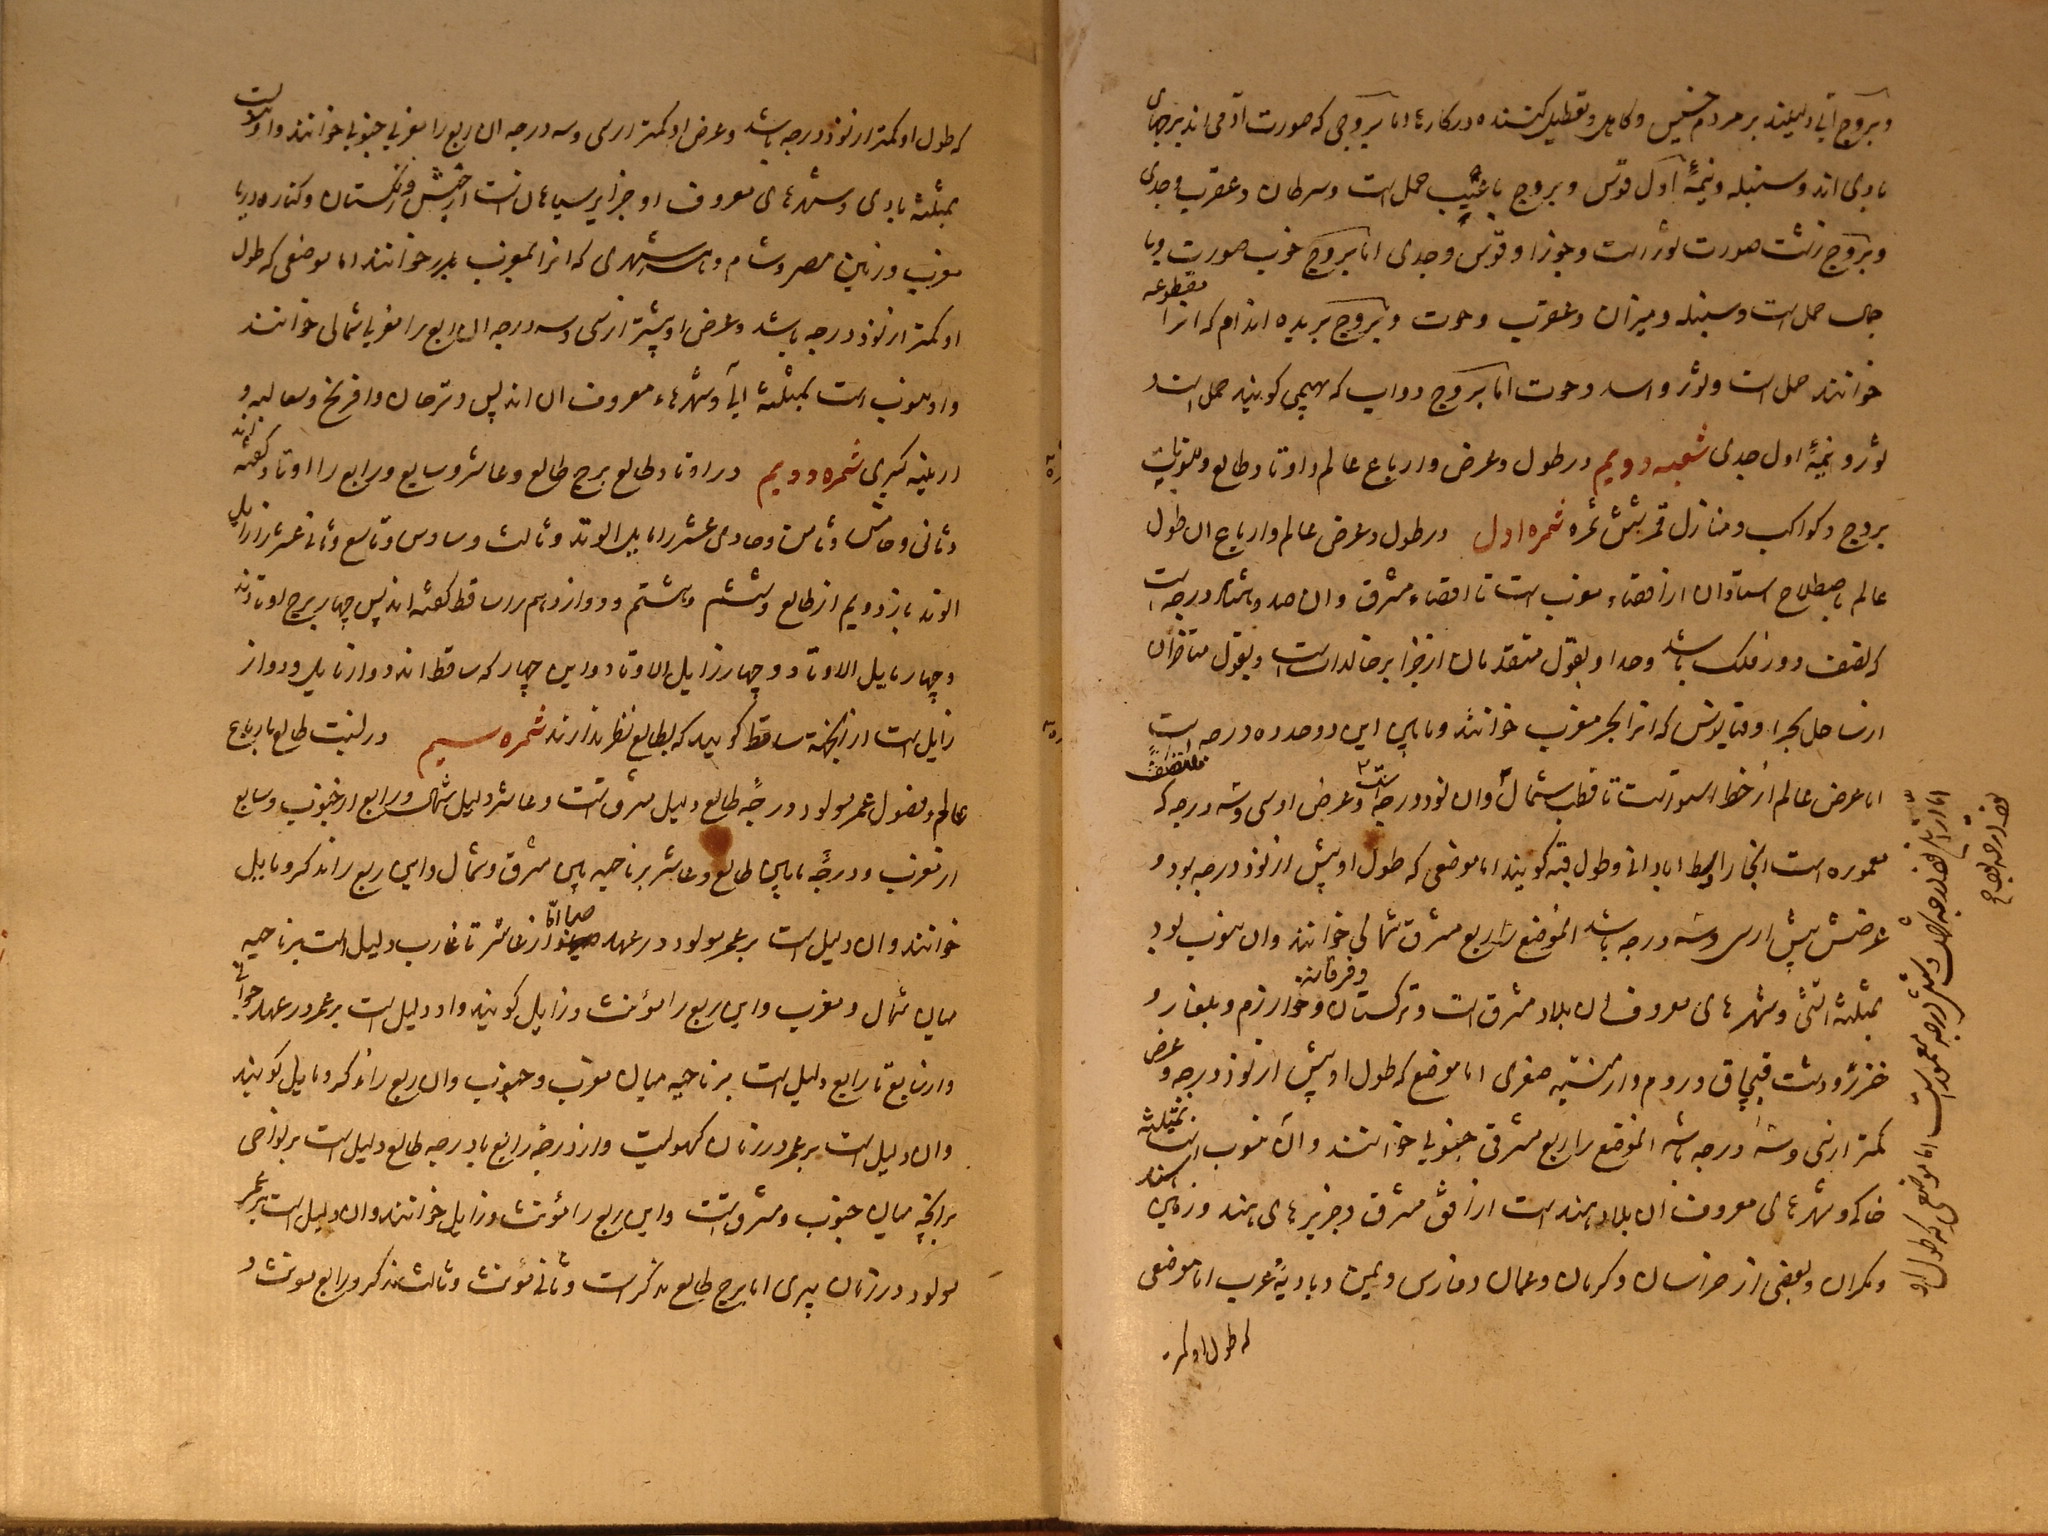 و بروج آبی دلیلند بر مردم خسیس و کاهل و تعطیل کننده در کارها اما بروجی که صورت آدمی اند برجهای
بادی اند و سنبله و نیمهٔ اول قوس و بروج با عیب حمل است و سرطان و عقرب و جدی
و بروج زشت صورت ثور است و جوزا و قوس و جدی اما بروج خوب صورت و با
جمال حمل است و سنبله و میزان و عقرب و حوت و بروج بریده اندام که انرا مقطوعه
خوانند حمل است و ثور و اسد و حوت اما بروج دواب که بهیمی کویند حمل است و
ثور و نیمهٔ اول جدی شعبه دویم در طول و عرض و ارباع عالم و اوتاد طالع و منوبات
بروج و کواکب و منازل قمر بشش ثمره ثمره اول در طول و عرض عالم و ارباع ان طول
عالم باصطلاح استادان از اقصاء مغرب است تا اقصاء مشرق و ان صد و هشتاد درجه است
که نصف دور فلک باشد وحد او بقول متقدمان از جزایر خالدات است و بقول متاخران
از ساحل بحر اوقیانوس که انرا بحر مغرب خوانند و مابین این دو حد ده درجه است
اما عرض عالم از خط استواست تا قطب شمال و ان نود درجه است و عرض او سی و سه درجه که
معموره است انجا را وسط ابادانی و طول قبه کویند اما موضعی که طول او بیش از نود درجه بود و
عرضش بیش از سی و سه درجه باشد انموضع را ربع مشرق شمالی خوانند و ان منوب بود
بمثلثه اتشی و شهرهای معروف ان بلاد مشرق است و ترکستان و فرغانه و خوارزم و بلغار و
خزر و دشت قبچاق و روم و ارمنیه صغری اما موضع که طول او بیش از نود درجه و عرض
کمتر از سی و سه درجه باشد انموضع را ربع مشرق جنوبی خوانند و ان منوب است بمثلثه
خاکی و شهرهای معروف ان بلاد هند است از افق مشرق و جزیرهای هند و زمین سند
و مکران و بعضی از خراسان و کرمان و عمان و فارس و یمن و بادیهٔ عرب اما موضعی
که طول او کمتر
که طول او کمتر از نود درجه باشد و عرض او کمتر از سی و سه درجه ان ربع را مغربی جنوبی خوانند و او است
بمثلثه بادی و شهرهای معروف او جزایر سیاهان است از حبش و زنکستان و کناره دریا
مغرب و زمین مصر و شام و هر شهری که انرا بمغرب خوانند اما موضعی که طول
او کمتر از نود درجه باشد و عرض او بیشتر از سی و سه درجه ان ربع را مغربی شمالی خوانند
و او منوب است بمثلثه ابی و شهرهاء معروف ان اندلس و و افرنج و و
ارمنیه کبری ثمره دویم در اوتاد طالع برج طالع و عاشر و سابع و رابع را اوتاد کفته اند
و ثانی و خامس و ثامن و حادی عشر را مایل الوتد و ثالث و سادس و تاسع و ثانی عشر را زایل
الوتد باز دویم از طالع و ششم و هشتم و دوازدهم را ساقط کفته اند پس چهار برج اوتادند
و چهار مایل الاوتاد و چهار زایل الاوتاد و این چهار که ساقط اند دو از مایل و دو از
زایل است از انجهة ساقط کویند که بطالع نظر ندارند ثمره سیم در نسبت طالع بارباع
عالم و فصول عمر مولود درجهٔ طالع دلیل مشرق است و عاشر دلیل شمال و رابع از جنوب و سابع
از مغرب و درجهٔ مابین طالع و عاشر بر ناحیه بین مشرق و شمال و این ربع را مذکر و مایل
خوانند و ان دلیل است بر عمر مولود در عهد صبا اما از عاشر تا غارب دلیل است بر ناحیه
میان شمال و مغرب و این ربع را مؤنث و زایل کویند و او دلیل است بر عمر در عهد جوانی
و از سابع تا رابع دلیل است بر ناحیه میان مغرب و جنوب و ان ربع را مذکر و مایل کویند
و ان دلیل است بر عمر در زمان کهولیت و از درجهٔ رابع تا درجه طالع دلیل است بر نواحی
برانچه میان جنوب و مشرق است و این ربع را مؤنث و زایل خوانند و ان دلیل است بر عمر
مولود در زمان پیری اما برج طالع مذکر است و ثانی مؤنث و ثالث مذکر و رابع مونث و